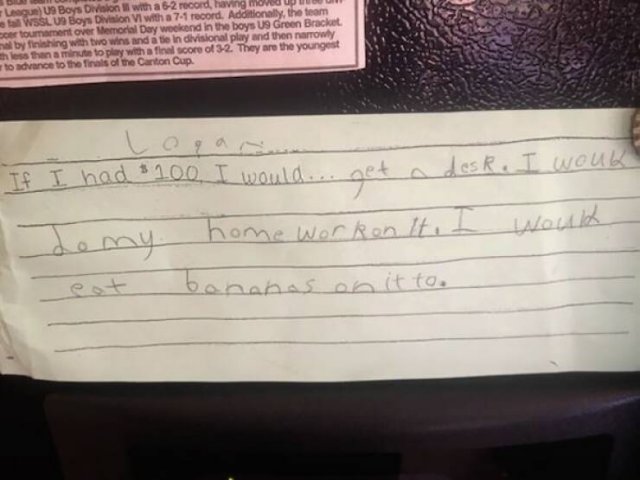 League) U9 Boys Division III with a 6-2 record, having moved up three
fall WSSL U9 Boys Division VI with a 7-1 record. Additionally, the team
tournament over Memorial Day weekend in the boys U9 Green Bracket.
by finishing with two wins and a tie in divisional play and then narrowly
less than a minute to play with a final score of 3-2. They are the youngest
to advance to the finals of the Canton Cup.
Logan
If I had $100 I would... get a desk. I would
do my homework on It. I would
eat bananas on it to.